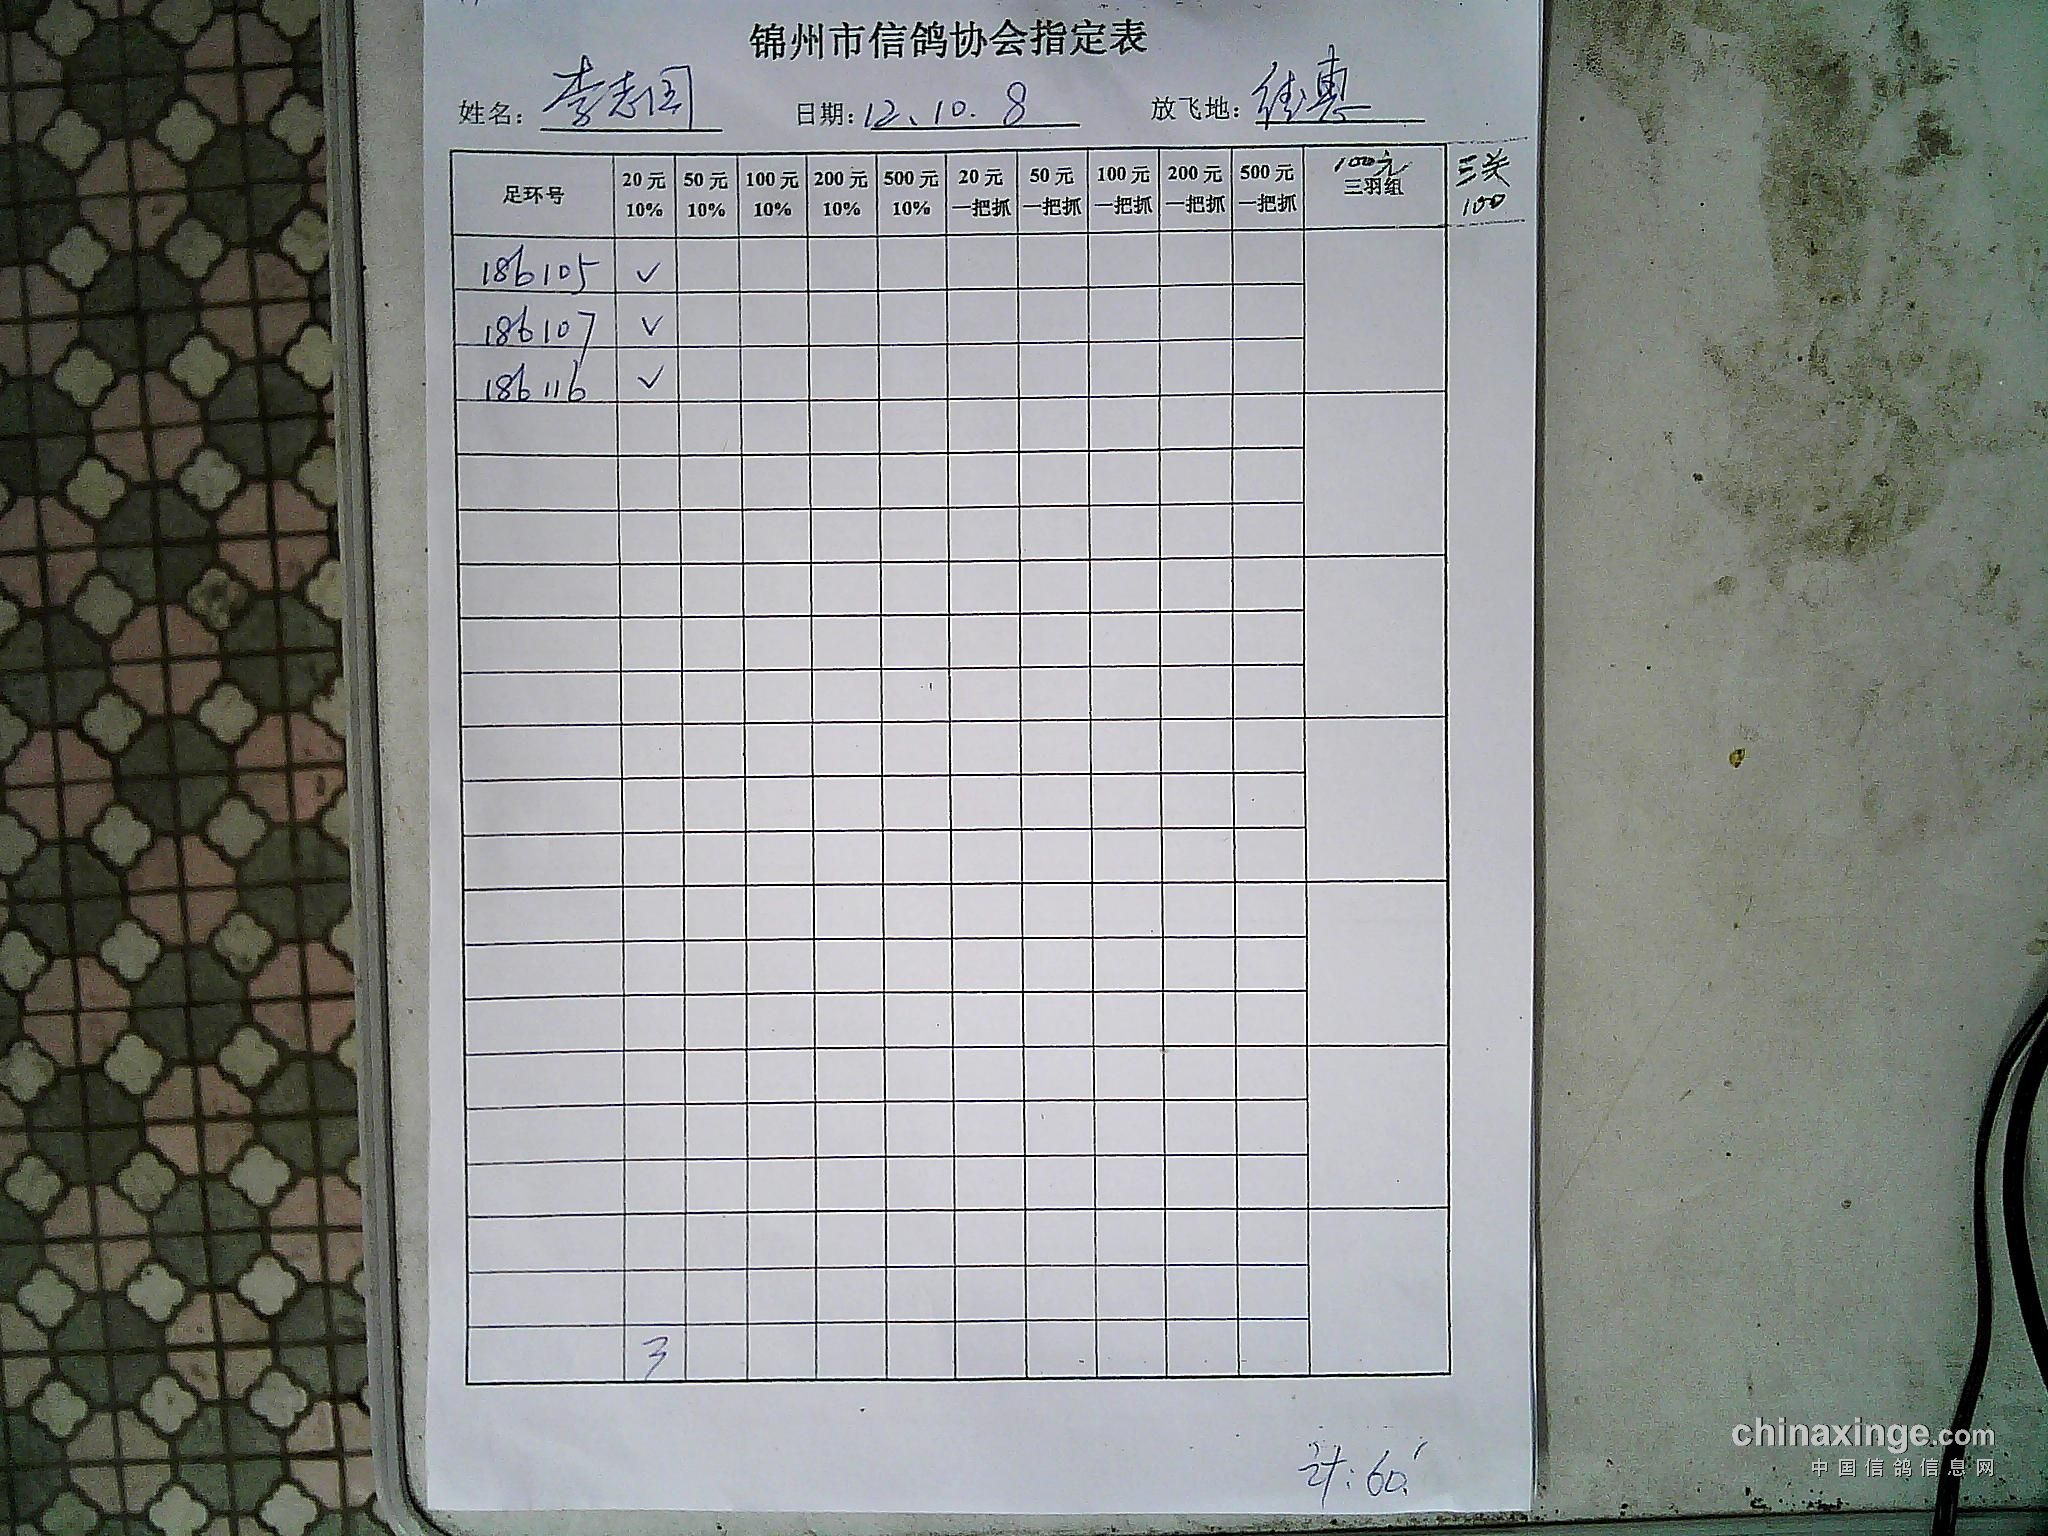 锦州市信鸽协会指定表
姓名: 李志国 日期: 12.10.8 放飞地: 德惠
足环号 20元 10% 50元 10% 100元 10% 200元 10% 500元 10% 20元 一把抓 50元 一把抓 100元 一把抓 200元 一把抓 500元 一把抓 100元 三羽组 三关 100
186105 ✓
186107 ✓
186116 ✓
3
计: 60.
chinaxinge.com
中国信鸽信息网